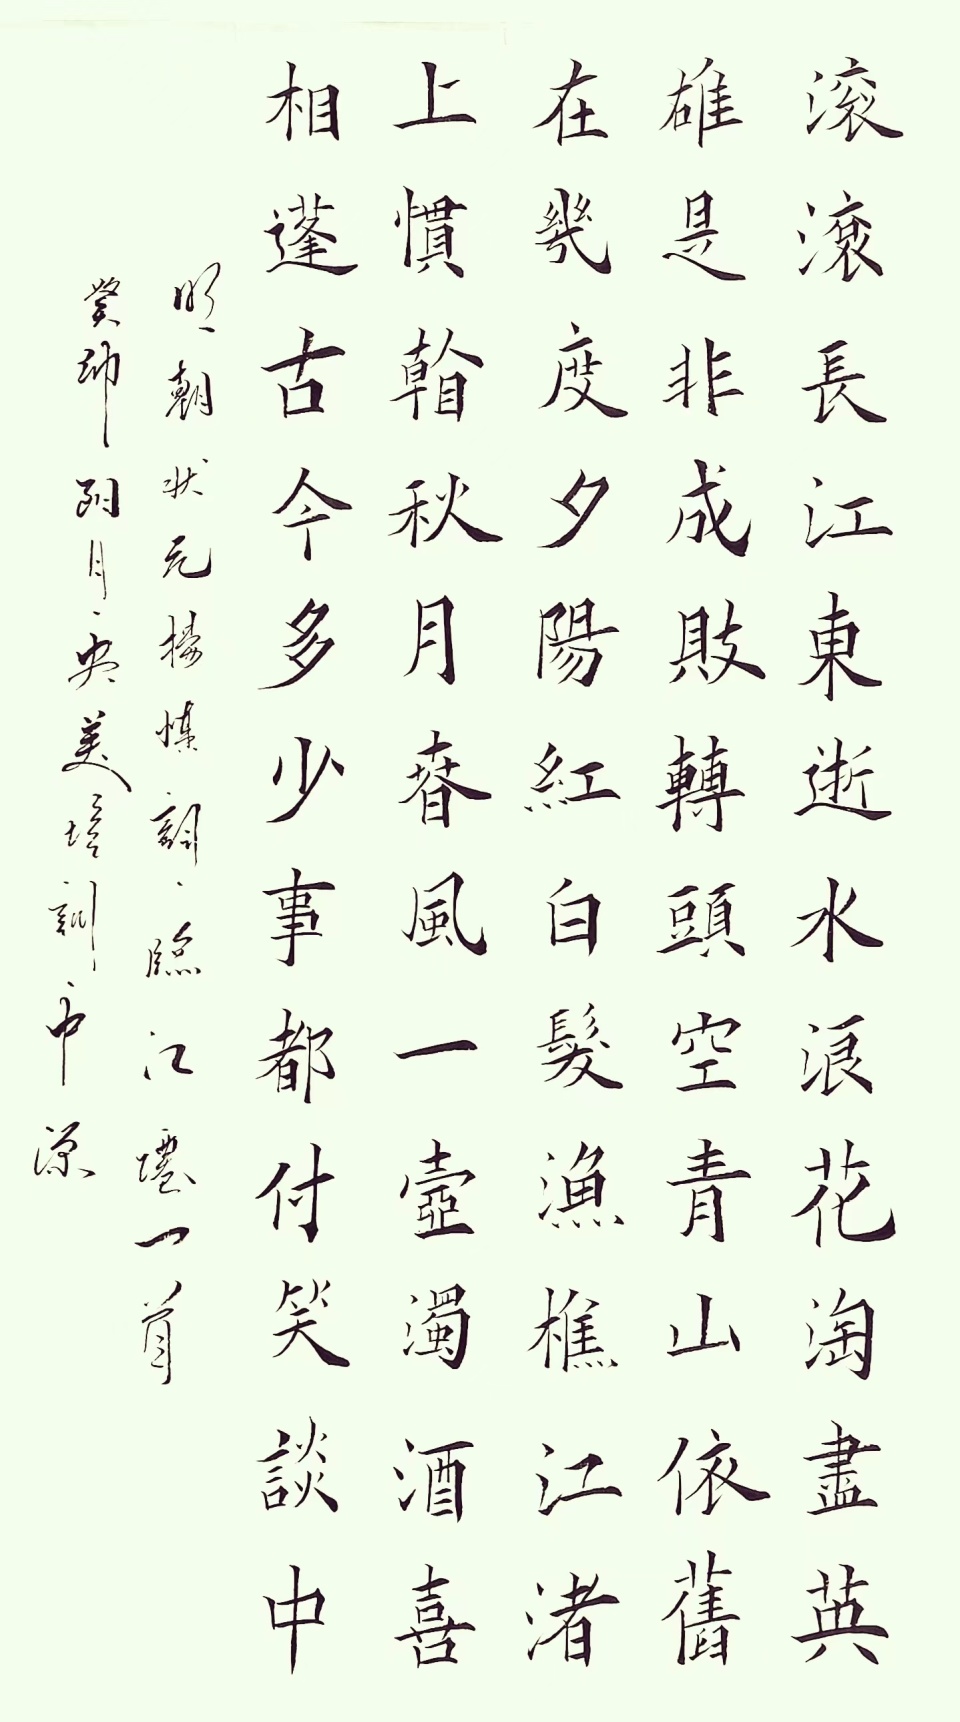 滚滾長江東逝水浪花淘盡英
雄是非成敗轉頭空青山依舊
在幾度夕陽紅白髮漁樵江渚
上慣看秋月春風一壺濁酒喜
相逢古今多少事都付笑談中
明朝狀元楊慎詞臨江僊一首
癸卯 月 美培訓中